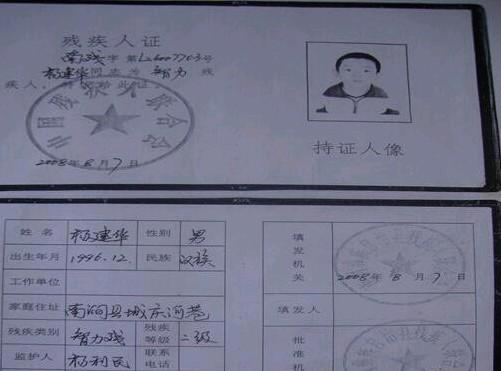 残疾人证
南残字 第L26007703号
杨建华同志为 智力 残
疾人，特发给此证。
中国残疾人联合会
2008年8月7日
持证人像
姓名 杨建华 性别 男
出生年月 1996.12. 民族 汉族
工作单位
家庭住址 南涧县城庆河巷
残疾类别 智力残 残疾等级 二级
监护人 杨利民 联系电话
填发机关 2008年8月7日
填发人
批准机